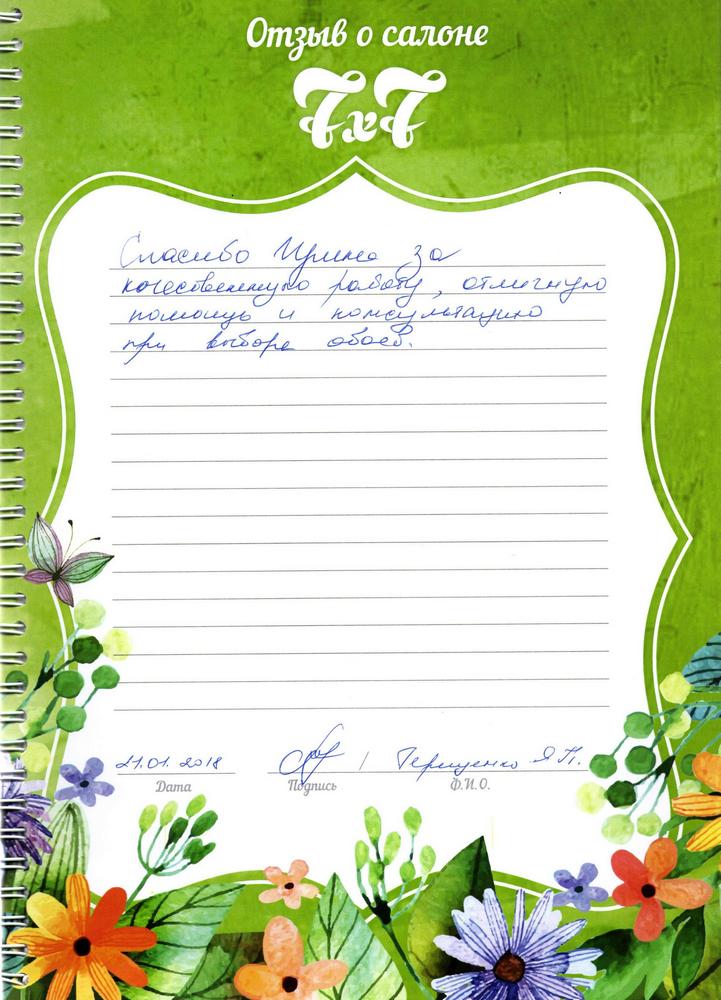 Отзыв о салоне
7х7
Спасибо Ирине за
качественную работу, отличную
помощь и консультацию
при выборе обоев.
21.01.2018 / Терищенко Я.П.
Дата Подпись Ф.И.О.